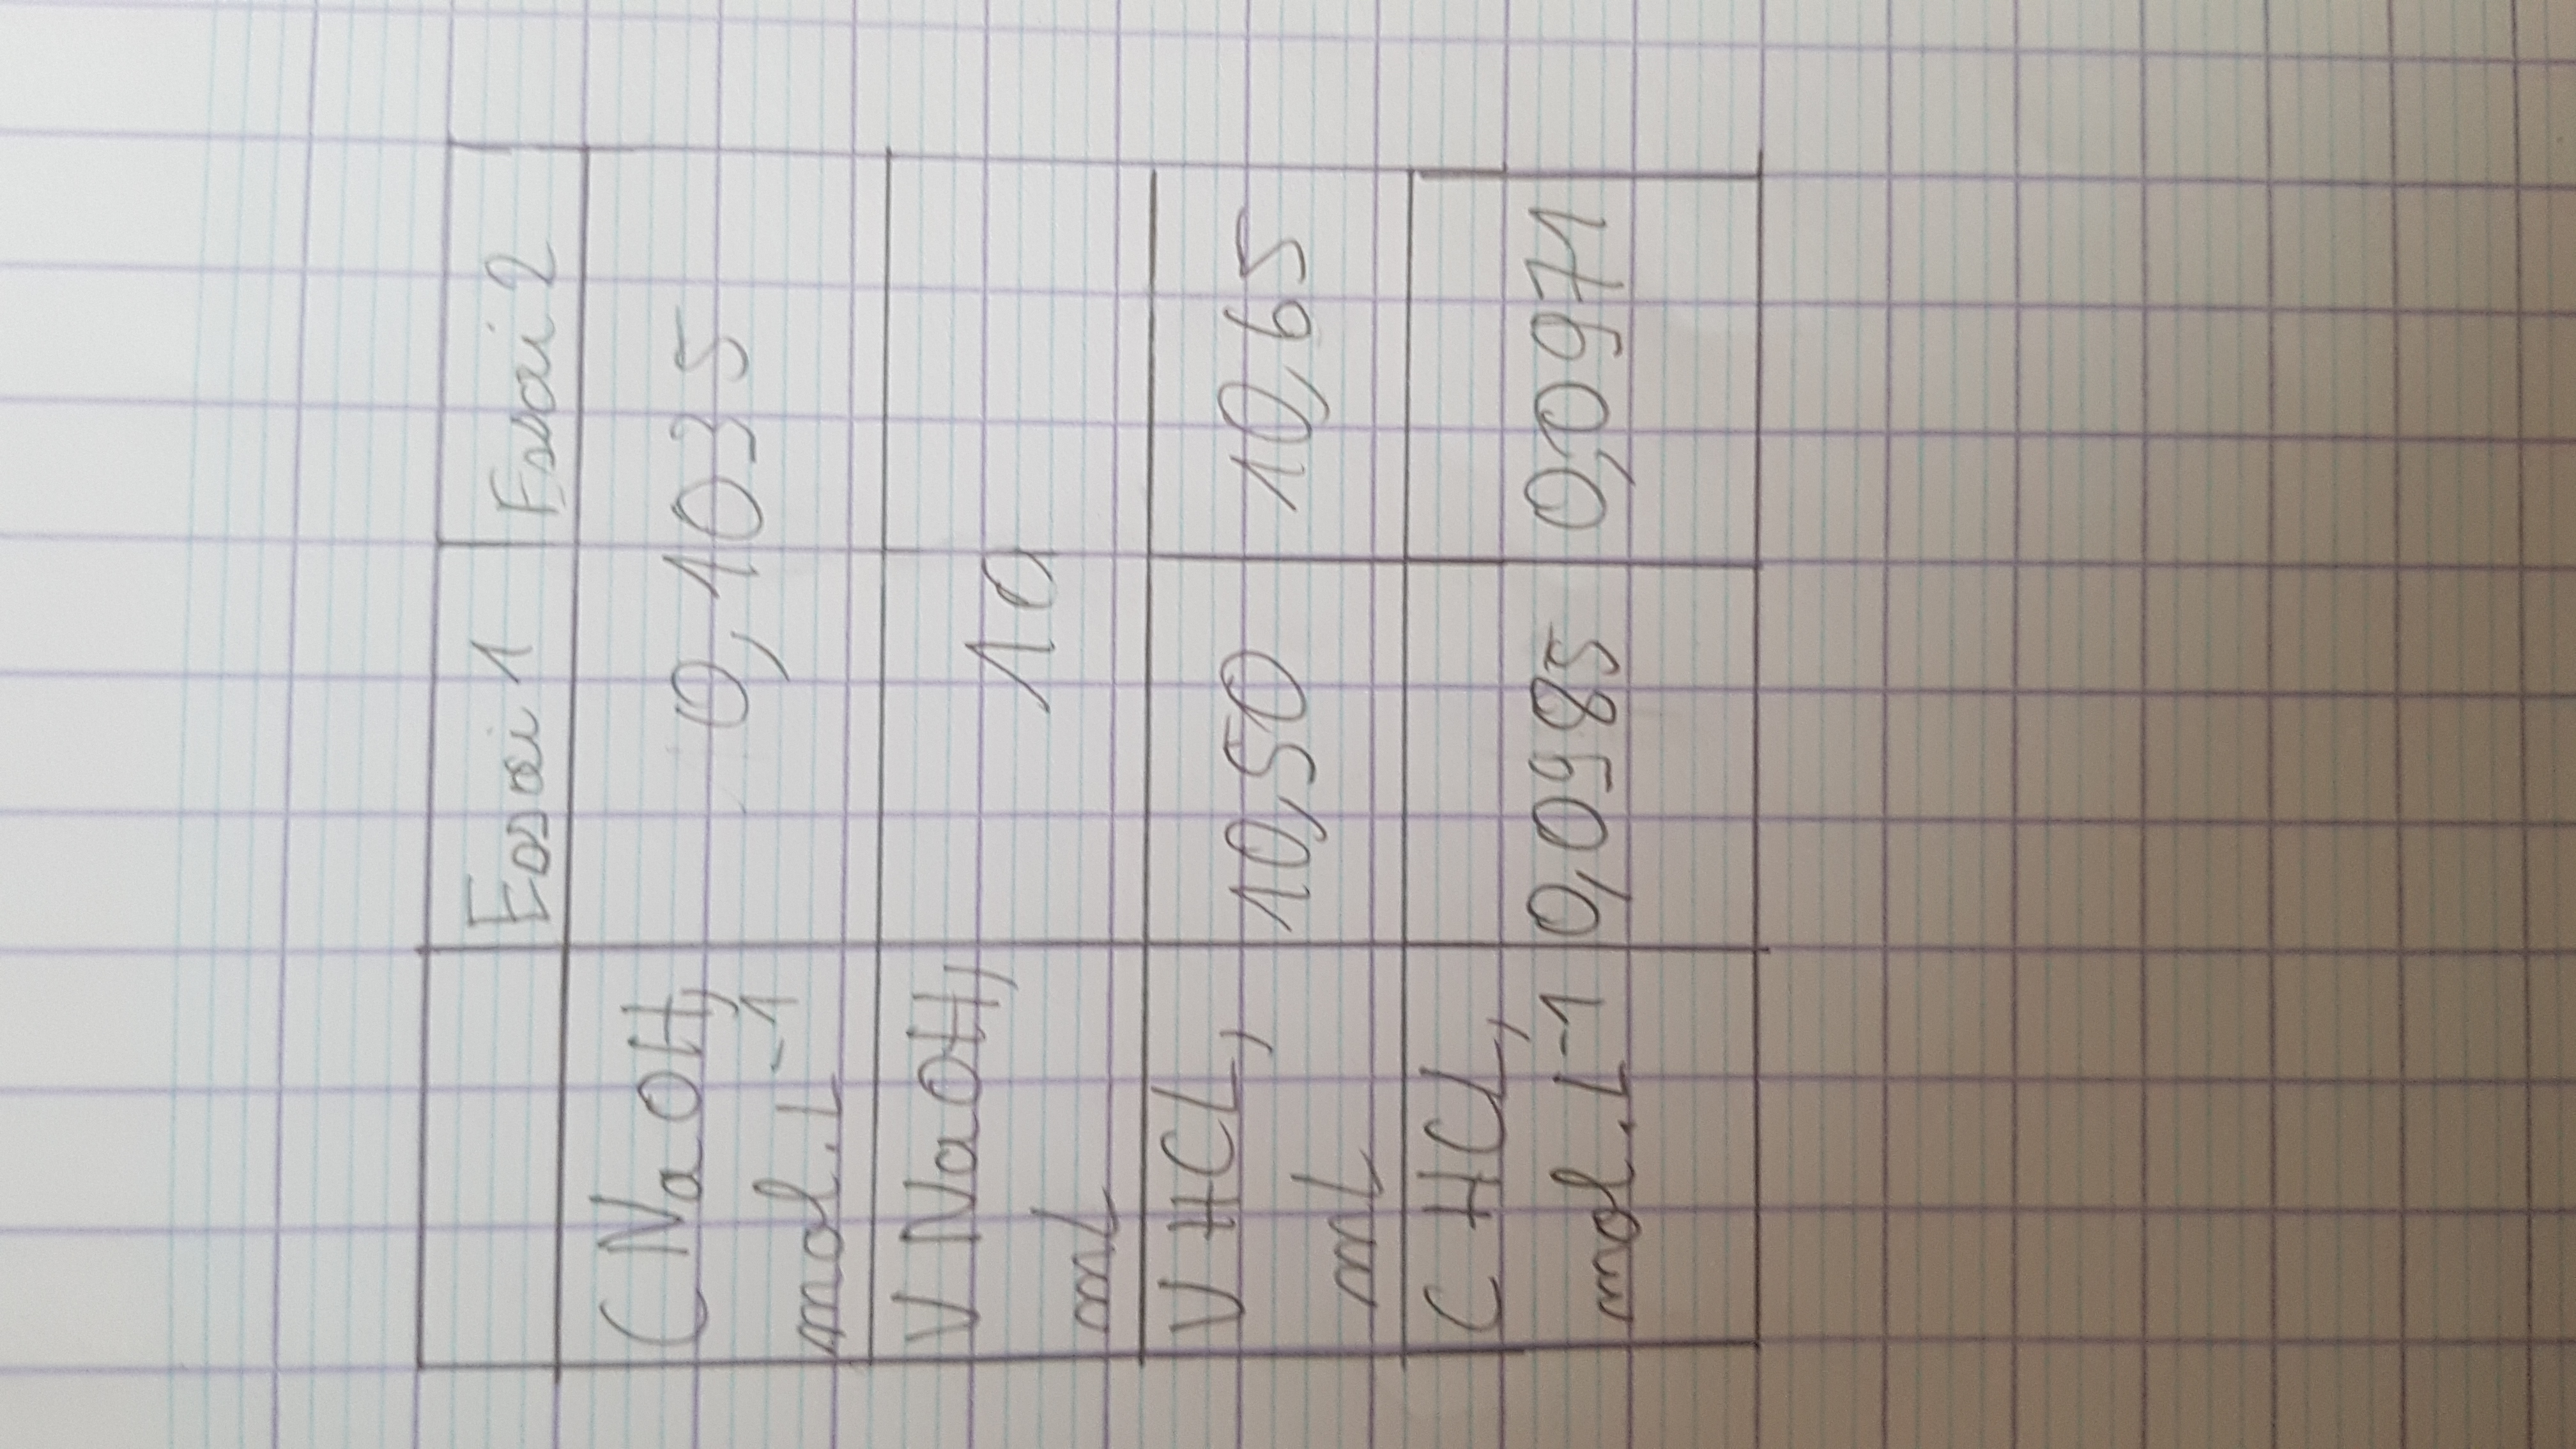 Essai 1 Essai 2
C NaOH, 0,1035
mol.L-1
V NaOH, 10
mL
V HCL, 10,50 10,65
mL
C HCL,
mol.L-1 0,0985 0,0971